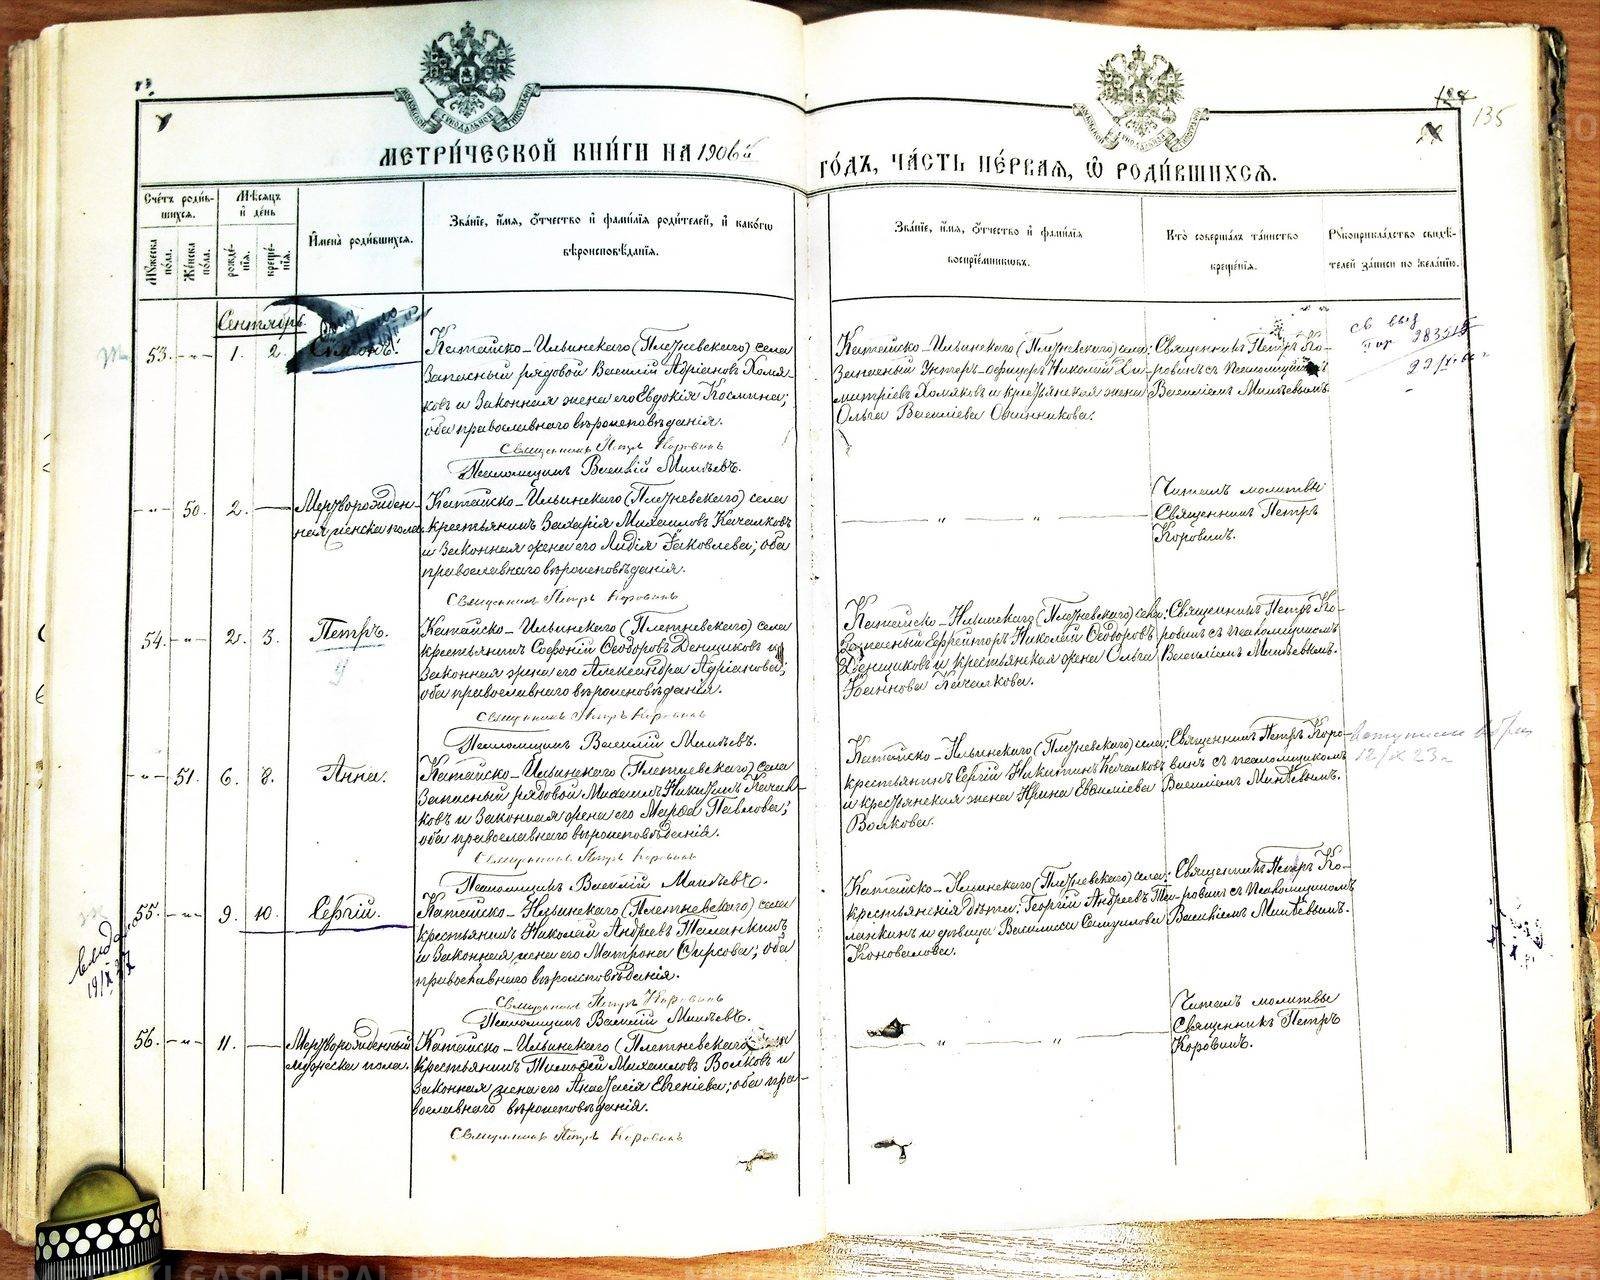 МЕТРИ́ЧЕСКОЙ КНИ́ГИ НА 1906й
ГО́ДЪ, ЧА́СТЬ ПЕ́РВАЯ, Ѽ РОДИ́ВШИХСЯ.
135
Сче́тъ роди́в-
шихся.
Мꙋ́жеска
по́ла.
Же́нска
по́ла.
Мѣ́сяцъ
и҆ де́нь
рожде́-
нїя.
креще́-
нїя.
И҆мена̀ роди́вшихся.
Зва́нїе, и҆́мя, ѻ҆́тчество и҆ фами́лїя роди́телей, и҆ како́гѡ
вѣроисповѣ́данїя.
Зва́нїе, и҆́мя, ѻ҆́тчество и҆ фами́лїя
воспрїе́мникѡвъ.
Кто̀ соверша́лъ та́инство
креще́нїя.
Рꙋкоприкла́дство свидѣ́-
телей за́писи по жела́нїю.
Сентябрь.
53. -„- 1. 2. Симеонъ.
Катайско-Ильинскаго (Плетневскаго) села
Запасный рядовой Василій Адріановъ Хомя-
ковъ и законная жена его Евдокія Космина;
оба православнаго вѣроисповѣданія.
Священникъ Петръ Коровинъ
Псаломщикъ Василій Минѣевъ.
Катайско-Ильинскаго (Плетневскаго) села:
Запасный Унтеръ-офицеръ Николай Ди-
митріевъ Хомяковъ и крестьянская жена
Ольга Василіева Овчинникова.
Священникъ Петръ Ко-
ровинъ съ псаломщикомъ
Василіемъ Минѣевымъ.
-„- 50. 2. — Мертворожден-
ная женска пола.
Катайско-Ильинскаго (Плетневскаго) села
крестьянинъ Захарія Михаиловъ Качалковъ
и законная жена его Лидія Іаковлева; оба
православнаго вѣроисповѣданія.
Священникъ Петръ Коровинъ
— „ — „ —
Читалъ молитвы
Священникъ Петръ
Коровинъ.
54. -„- 2. 3. Петръ.
Катайско-Ильинскаго (Плетневскаго) села
крестьянинъ Софоній Ѳеодоровъ Денщиковъ и
законная жена его Александра Адріанова;
оба православнаго вѣроисповѣданія.
Священникъ Петръ Коровинъ
Псаломщикъ Василій Минѣевъ.
Катайско-Ильинскаго (Плетневскаго) села:
Запасный Ефрейторъ Николай Ѳеодоровъ
Денщиковъ и крестьянская жена Ольга
Іоаннова Качалкова.
Священникъ Петръ Ко-
ровинъ съ псаломщикомъ
Василіемъ Минѣевымъ.
-„- 51. 6. 8. Анна.
Катайско-Ильинскаго (Плетневскаго) села
Запасный рядовой Михаилъ Никитинъ Качал-
ковъ и законная жена его Марѳа Павлова;
оба православнаго вѣроисповѣданія.
Священникъ Петръ Коровинъ
Псаломщикъ Василій Минѣевъ.
Катайско-Ильинскаго (Плетневскаго) села:
крестьянинъ Сергій Никитинъ Качалковъ
и крестьянская жена Ирина Евѳиміева
Волкова.
Священникъ Петръ Коро-
винъ съ псаломщикомъ
Василіемъ Минѣевымъ.
12/X 23 г.
55. -„- 9. 10. Сергій.
Катайско-Ильинскаго (Плетневскаго) села
крестьянинъ Николай Андреевъ Таланкинъ
и законная жена его Матрона Фирсова; оба
православнаго вѣроисповѣданія.
Священникъ Петръ Коровинъ
Псаломщикъ Василій Минѣевъ.
Катайско-Ильинскаго (Плетневскаго) села:
крестьянскія дѣти: Георгій Андреевъ Та-
ланкинъ и дѣвица Василиса Самуилова
Коновалова.
Священникъ Петръ Ко-
ровинъ съ псаломщикомъ
Василіемъ Минѣевымъ.
56. -„- 11. — Мертворожденный
мужеска пола.
Катайско-Ильинскаго (Плетневскаго)
крестьянинъ Тимоѳей Михаиловъ Волковъ и
законная жена его Анастасія Евгеніева; оба пра-
вославнаго вѣроисповѣданія.
Священникъ Петръ Коровинъ
— „ — „ —
Читалъ молитвы
Священникъ Петръ
Коровинъ.